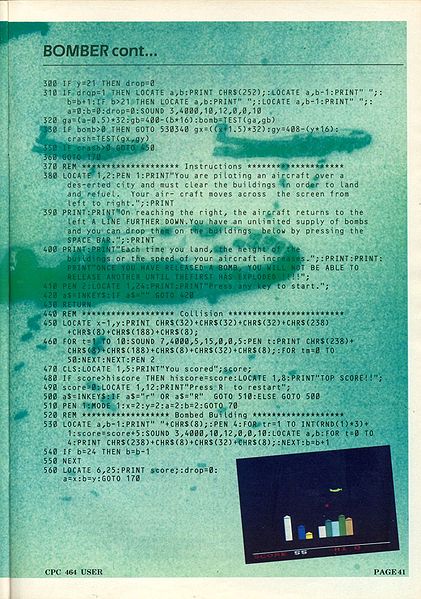 BOMBER cont...
300 IF y=21 THEN drop=0
310 IF drop=1 THEN LOCATE a,b:PRINT CHR$(252);:LOCATE a,b-1:PRINT" ";:
b=b+1:IF b>21 THEN LOCATE a,b:PRINT" ";:LOCATE a,b-1:PRINT" ";:
a=0:b=0:drop=0:SOUND 3,4000,10,12,0,0,10
320 ga=(a-0.5)*32:gb=400-(b*16):bomb=TEST(ga,gb)
330 IF bomb>0 THEN GOTO 530340 gx=((x+1.5)*32):gy=408-(y*16):
crash=TEST(gx,gy)
350 IF crash>0 GOTO 450
360 GOTO 170
370 REM ******************** Instructions ********************
380 LOCATE 1,2:PEN 1:PRINT"You are piloting an aircraft over a
des-erted city and must clear the buildings in order to land
and refuel. Your air- craft moves across the screen from
left to right.";:PRINT
390 PRINT:PRINT"On reaching the right, the aircraft returns to the
left A LINE FURTHER DOWN.You have an unlimited supply of bombs
and you can drop them on the buildings below by pressing the
SPACE BAR.";:PRINT
400 PRINT:PRINT"Each time you land, the height of the
buildings or the speed of your aircraft increases.";:PRINT:PRINT:
PRINT"ONCE YOU HAVE RELEASED A BOMB, YOU WILL NOT BE ABLE TO
RELEASE ANOTHER UNTIL THEFIRST HAS EXPLODED !!!";
410 PEN 2:LOCATE 1,24:PRINT:PRINT"Press any key to start.";
420 a$=INKEY$:IF a$="" GOTO 420
430 RETURN
440 REM ******************** Collision ********************
450 LOCATE x-1,y:PRINT CHR$(32)+CHR$(32)+CHR$(32)+CHR$(238)
+CHR$(8)+CHR$(188)+CHR$(8);
460 FOR t=1 TO 10:SOUND 7,4000,5,15,0,0,5:PEN t:PRINT CHR$(238)+
CHR$(8)+CHR$(188)+CHR$(8)+CHR$(32)+CHR$(8);:FOR tm=0 TO
50:NEXT:NEXT:PEN 2
470 CLS:LOCATE 1,5:PRINT"You scored";score;
480 IF score>hiscore THEN hiscore=score:LOCATE 1,8:PRINT"TOP SCORE!!";
490 score=0:LOCATE 1,12:PRINT"Press R to restart";
500 a$=INKEY$:IF a$="r" OR a$="R" GOTO 510:ELSE GOTO 500
510 PEN 1:MODE 1:x=2:y=2:a=2:b=2:GOTO 70
520 REM ****************** Bombed Building ******************
530 LOCATE a,b-1:PRINT" "+CHR$(8);:PEN 4:FOR tr=1 TO INT(RND(1)*3)+
1:score=score+5:SOUND 3,4000,10,12,0,0,10:LOCATE a,b:FOR t=0 TO
4:PRINT CHR$(238)+CHR$(8)+CHR$(32)+CHR$(8);:NEXT:b=b+1
540 IF b=24 THEN b=b-1
550 NEXT
560 LOCATE 6,25:PRINT score;:drop=0:
a=x:b=y:GOTO 170
SCORE 55 HI 0
CPC 464 USER
PAGE 41